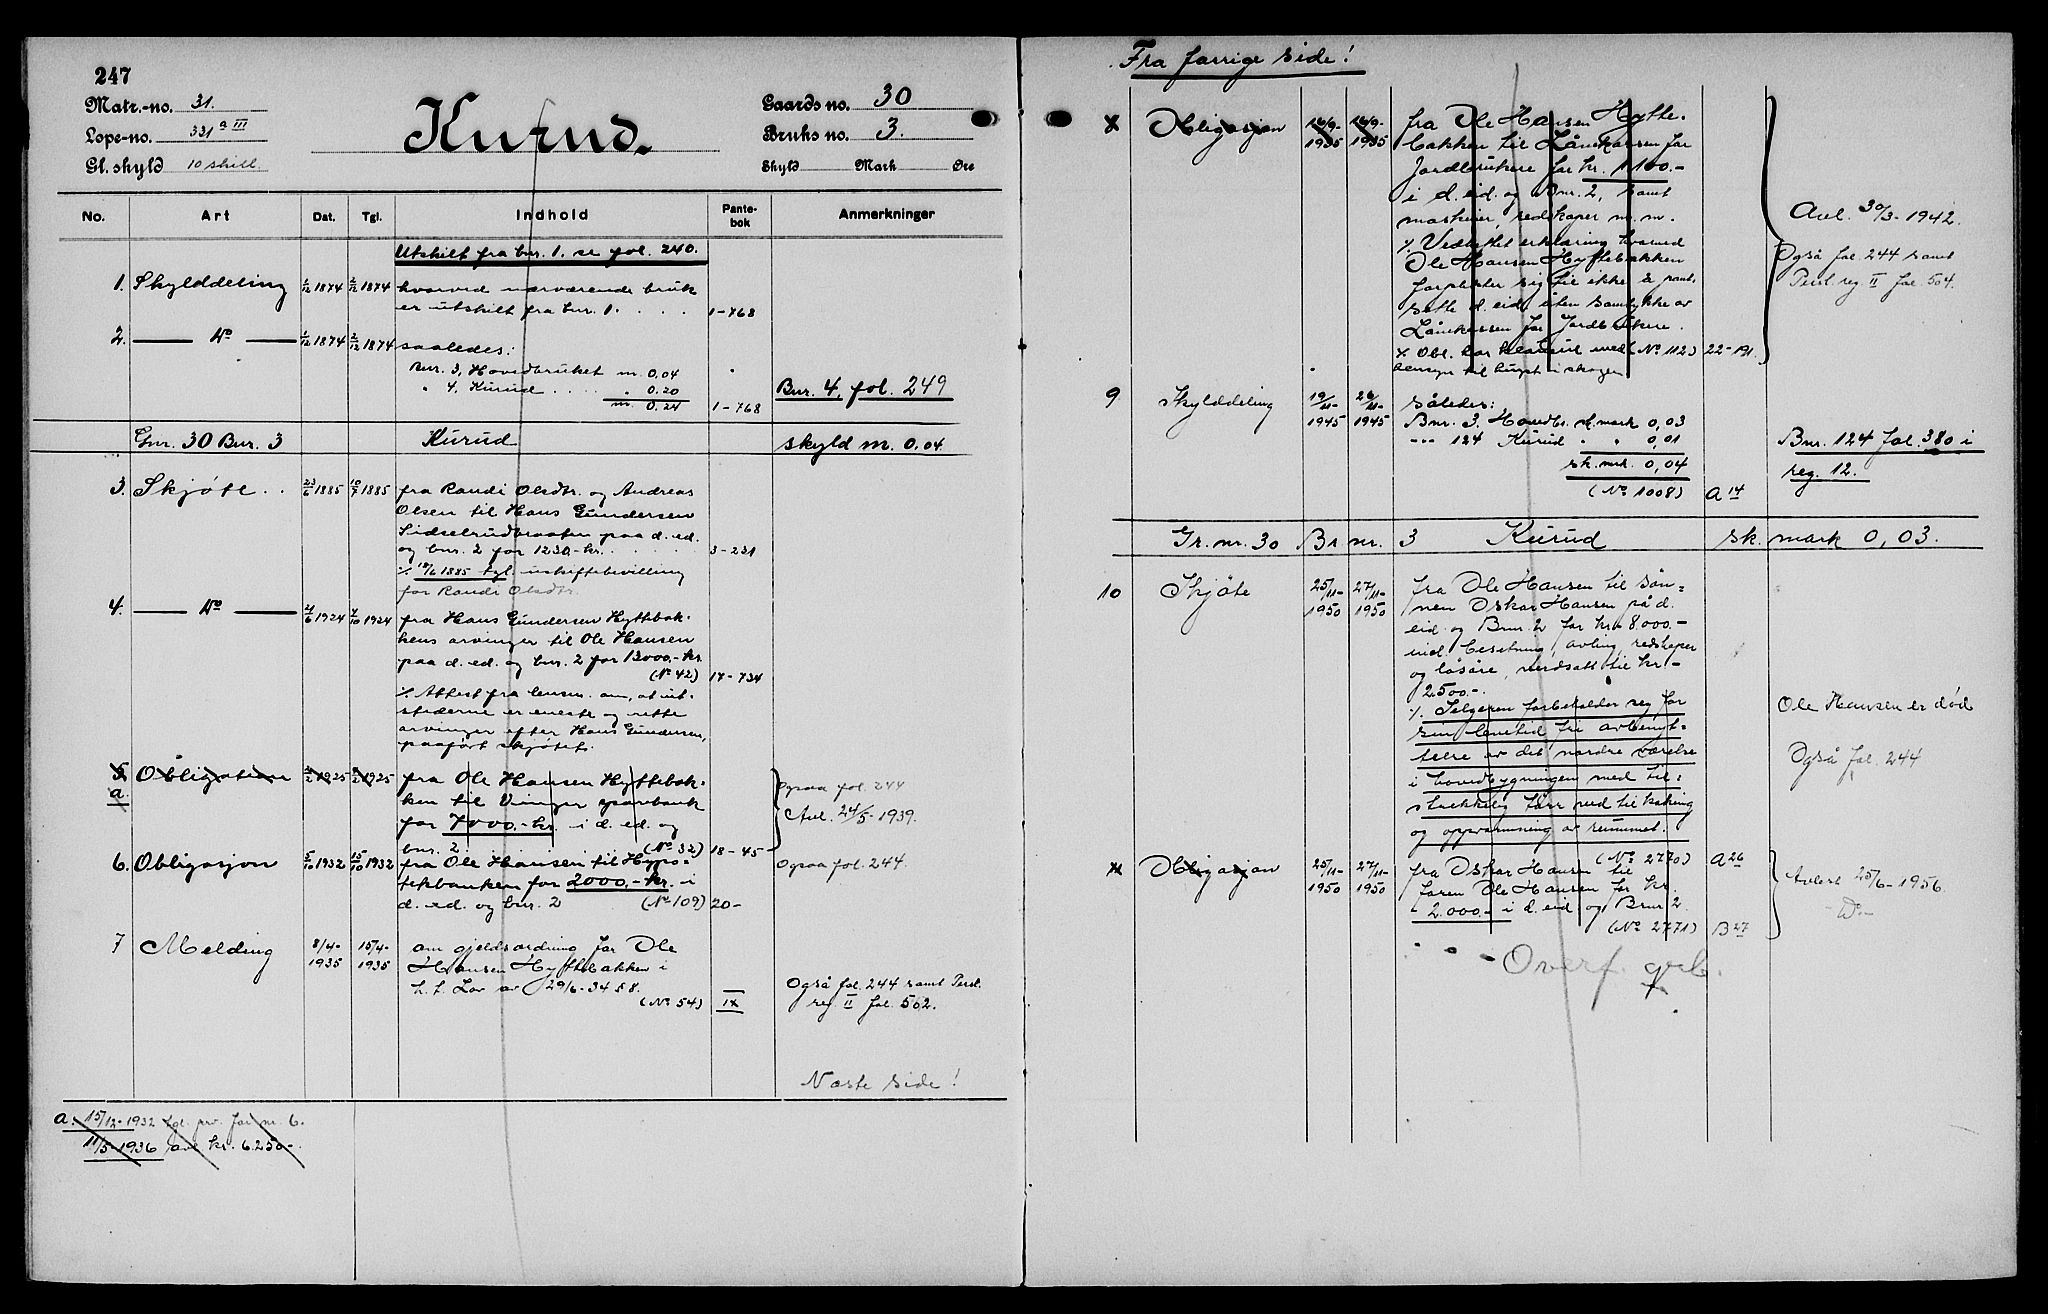 247
Matr.-no. 31.
Løpe-no. 331 a III
Gl. skyld 10 skill.
Kurud.
Gaards no. 30
Bruks no. 3.
Skyld Mark Øre
No. Art Dat. Tgl. Indhold Pante-bok Anmerkninger
Utskilt fra bnr. 1. se fol. 240.
1. Skylddeling 1/12 1874 2/12 1874 hvorved nærværende bruk
er utskilt fra bnr. 1. . . . . 1-768
2. — Do — 1/12 1874 2/12 1874 saaledes:
Bnr. 3, Hovedbruket m. 0,04
" 4, Kurud . . . . " 0.20 Bnr. 4, fol. 249
m. 0,24 1-768
Gnr. 30 Bnr. 3 Kurud skyld m. 0.04
3. Skjøte . . 23/6 1885 10/7 1885 fra Randi Olsdtr. og Andreas
Olsen til Hans Gundersen
Sidselrudbraaten paa d. ed.
og bnr. 2 for 1230,- kr. . . . . . 3-231
./. 18/6 1885 tgl. uskiftebevilling
for Randi Olsdtr.
4. — Do — 21/6 1924 7/10 1924 fra Hans Gundersen Hyttebak-
kens arvinger til Ole Hansen
paa d. ed. og bnr. 2 for 13000,- kr.
(No 42) 17-734
./. Attest fra lensm. om, at ut-
stederne er eneste og rette
arvinger efter Hans Gundersen,
paaført skjøtet.
5. Obligation 1925 1925 fra Ole Hansen Hyttebak-
a.
ken til Vinger sparebank Ogsaa fol. 244
for 7000,- kr. i d. ed. og Avl. 24/5-1939.
bnr. 2 (No 32) 18-45
6. Obligasjon 5/10 1932 15/10 1932 fra Ole Hansen til Hypo- Ogsaa fol. 244.
tekbanken for 2000,- kr. i
d. ed. og bnr. 2 (No 109) 20-
7 Melding 8/4- 1935 15/4- 1935 om gjeldsordning for Ole
Hansen Hyttebakken i
h. t. Lov av 29/6-34 § 8. Også fol. 244 samt Persl.
(No 54) IX reg. II fol. 502.
Næste side!
a. 15/12-1932 tgl. prv. for nr. 6.
11/5-1936 avl kr. 6250-.
Fra forrige side!
Obligasjon 16/9- 1935 16/9- 1935 fra Ole Hansen Hytte-
bakken til Lånekassen for
Jordbrukere for kr. 1100.-
i d. eid. og Bnr. 2, samt
maskiner, redskaper m. m. Avl. 30/3-1942.
./. Vedheftet erklæring hvorved
Ole Hansen Hyttebakken Også fol. 244 samt
forplikter sig til ikke å pant- Persl. reg. II fol. 504.
sette d. eid. uten samtykke av
Lånekassen for Jordbrukere.
x Obl. har klausul med (No 112) 22-191.
hensyn til hugst i skogen
9 Skylddeling 19/11- 1945 26/11- 1945 således:
Bnr. 3. Hovedbr. sk. mark 0,03
" " 124 Kurud " " 0,01 Bnr. 124 fol. 380 i
sk. mrk. 0,04 reg. 12.
(No 1008) A 14
Gr. nr. 30 Br nr. 3 Kurud sk. mark 0,03.
10 Skjøte 25/11- 1950 27/11- 1950 fra Ole Hansen til søn-
nen Oskar Hansen på d.
eid. og Bnr. 2 for kr. 8.000.-
inkl. besetning, avling, redskaper
og løsøre, verdsatt til kr.
2.500.-.
./. Selgeren forbeholder seg for Ole Hansen er død
sin levetid fri avbenyt-
telse av det nordre værelse Også fol. 244
i hovedbygningen med til-
strekkelig tørr ved til koking
og oppvarmning av rummet.
(No 2770) A 26
Obligasjon 25/11- 1950 27/11- 1950 fra Oskar Hansen til
faren Ole Hansen for kr. Avlest 25/6-1956.
2.000.- i d. eid. og Bnr 2 -Do-
(No 2771) B 27
Overf. grb.